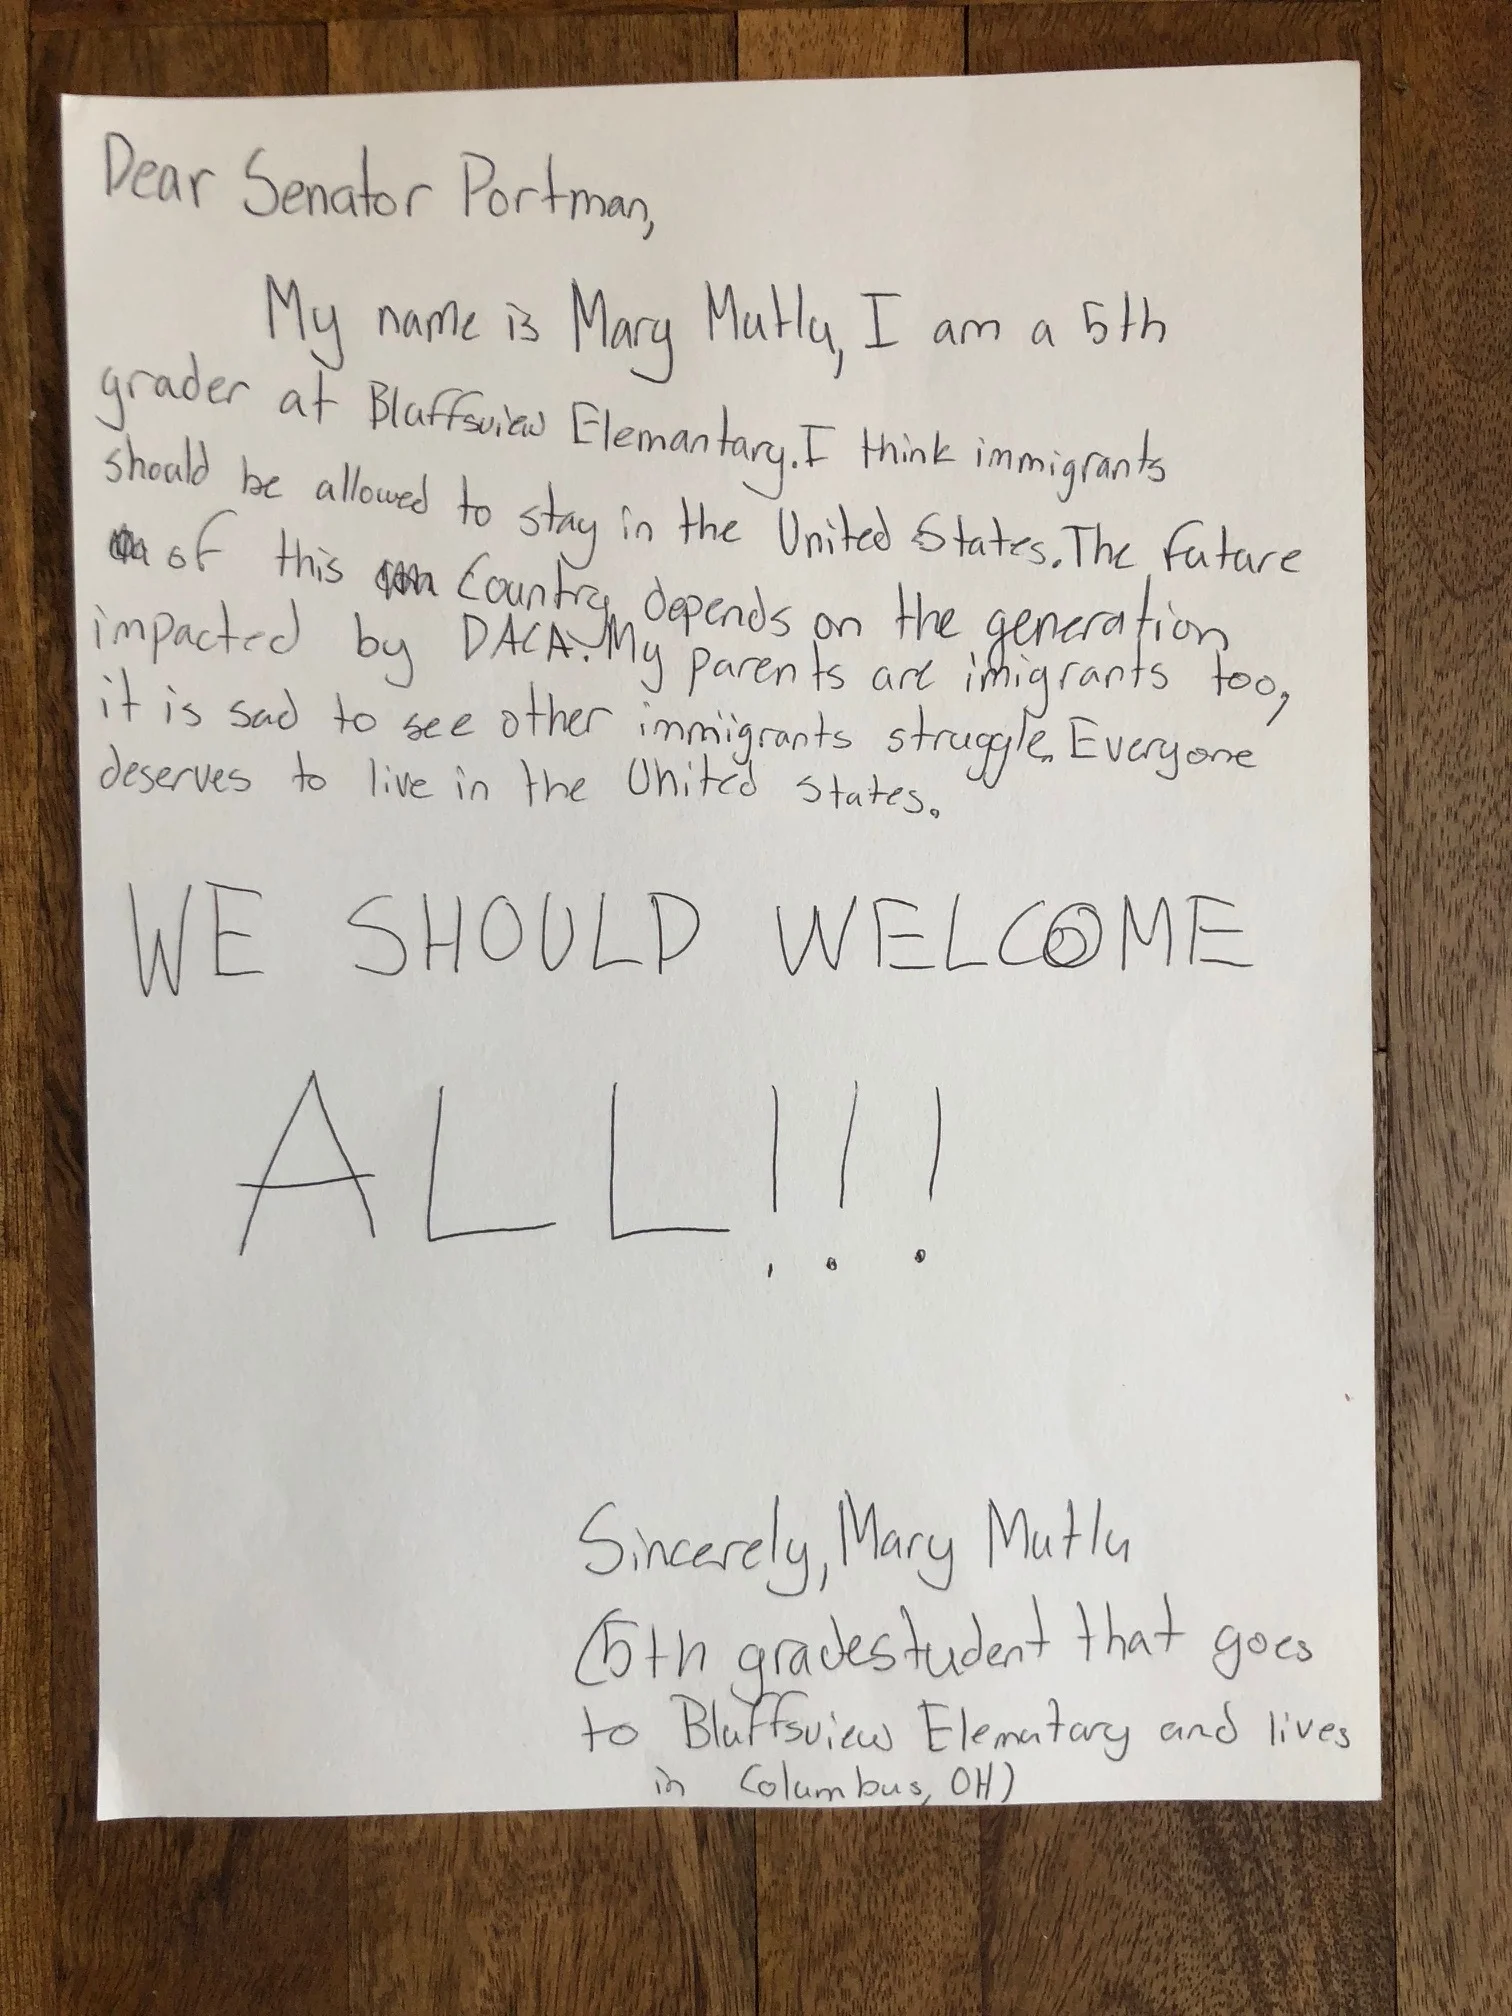 Dear Senator Portman,
My name is Mary Mutlu, I am a 5th
grader at Bluffsview Elemantary. I think immigrants
should be allowed to stay in the United States. The future
of this Country depends on the generation
impacted by DACA. My parents are imigrants too,
it is sad to see other immigrants struggle. Everyone
deserves to live in the United States.
WE SHOULD WELCOME
ALL!!!
Sincerely, Mary Mutlu
(5th grade student that goes
to Bluffsview Elematary and lives
in Columbus, OH)